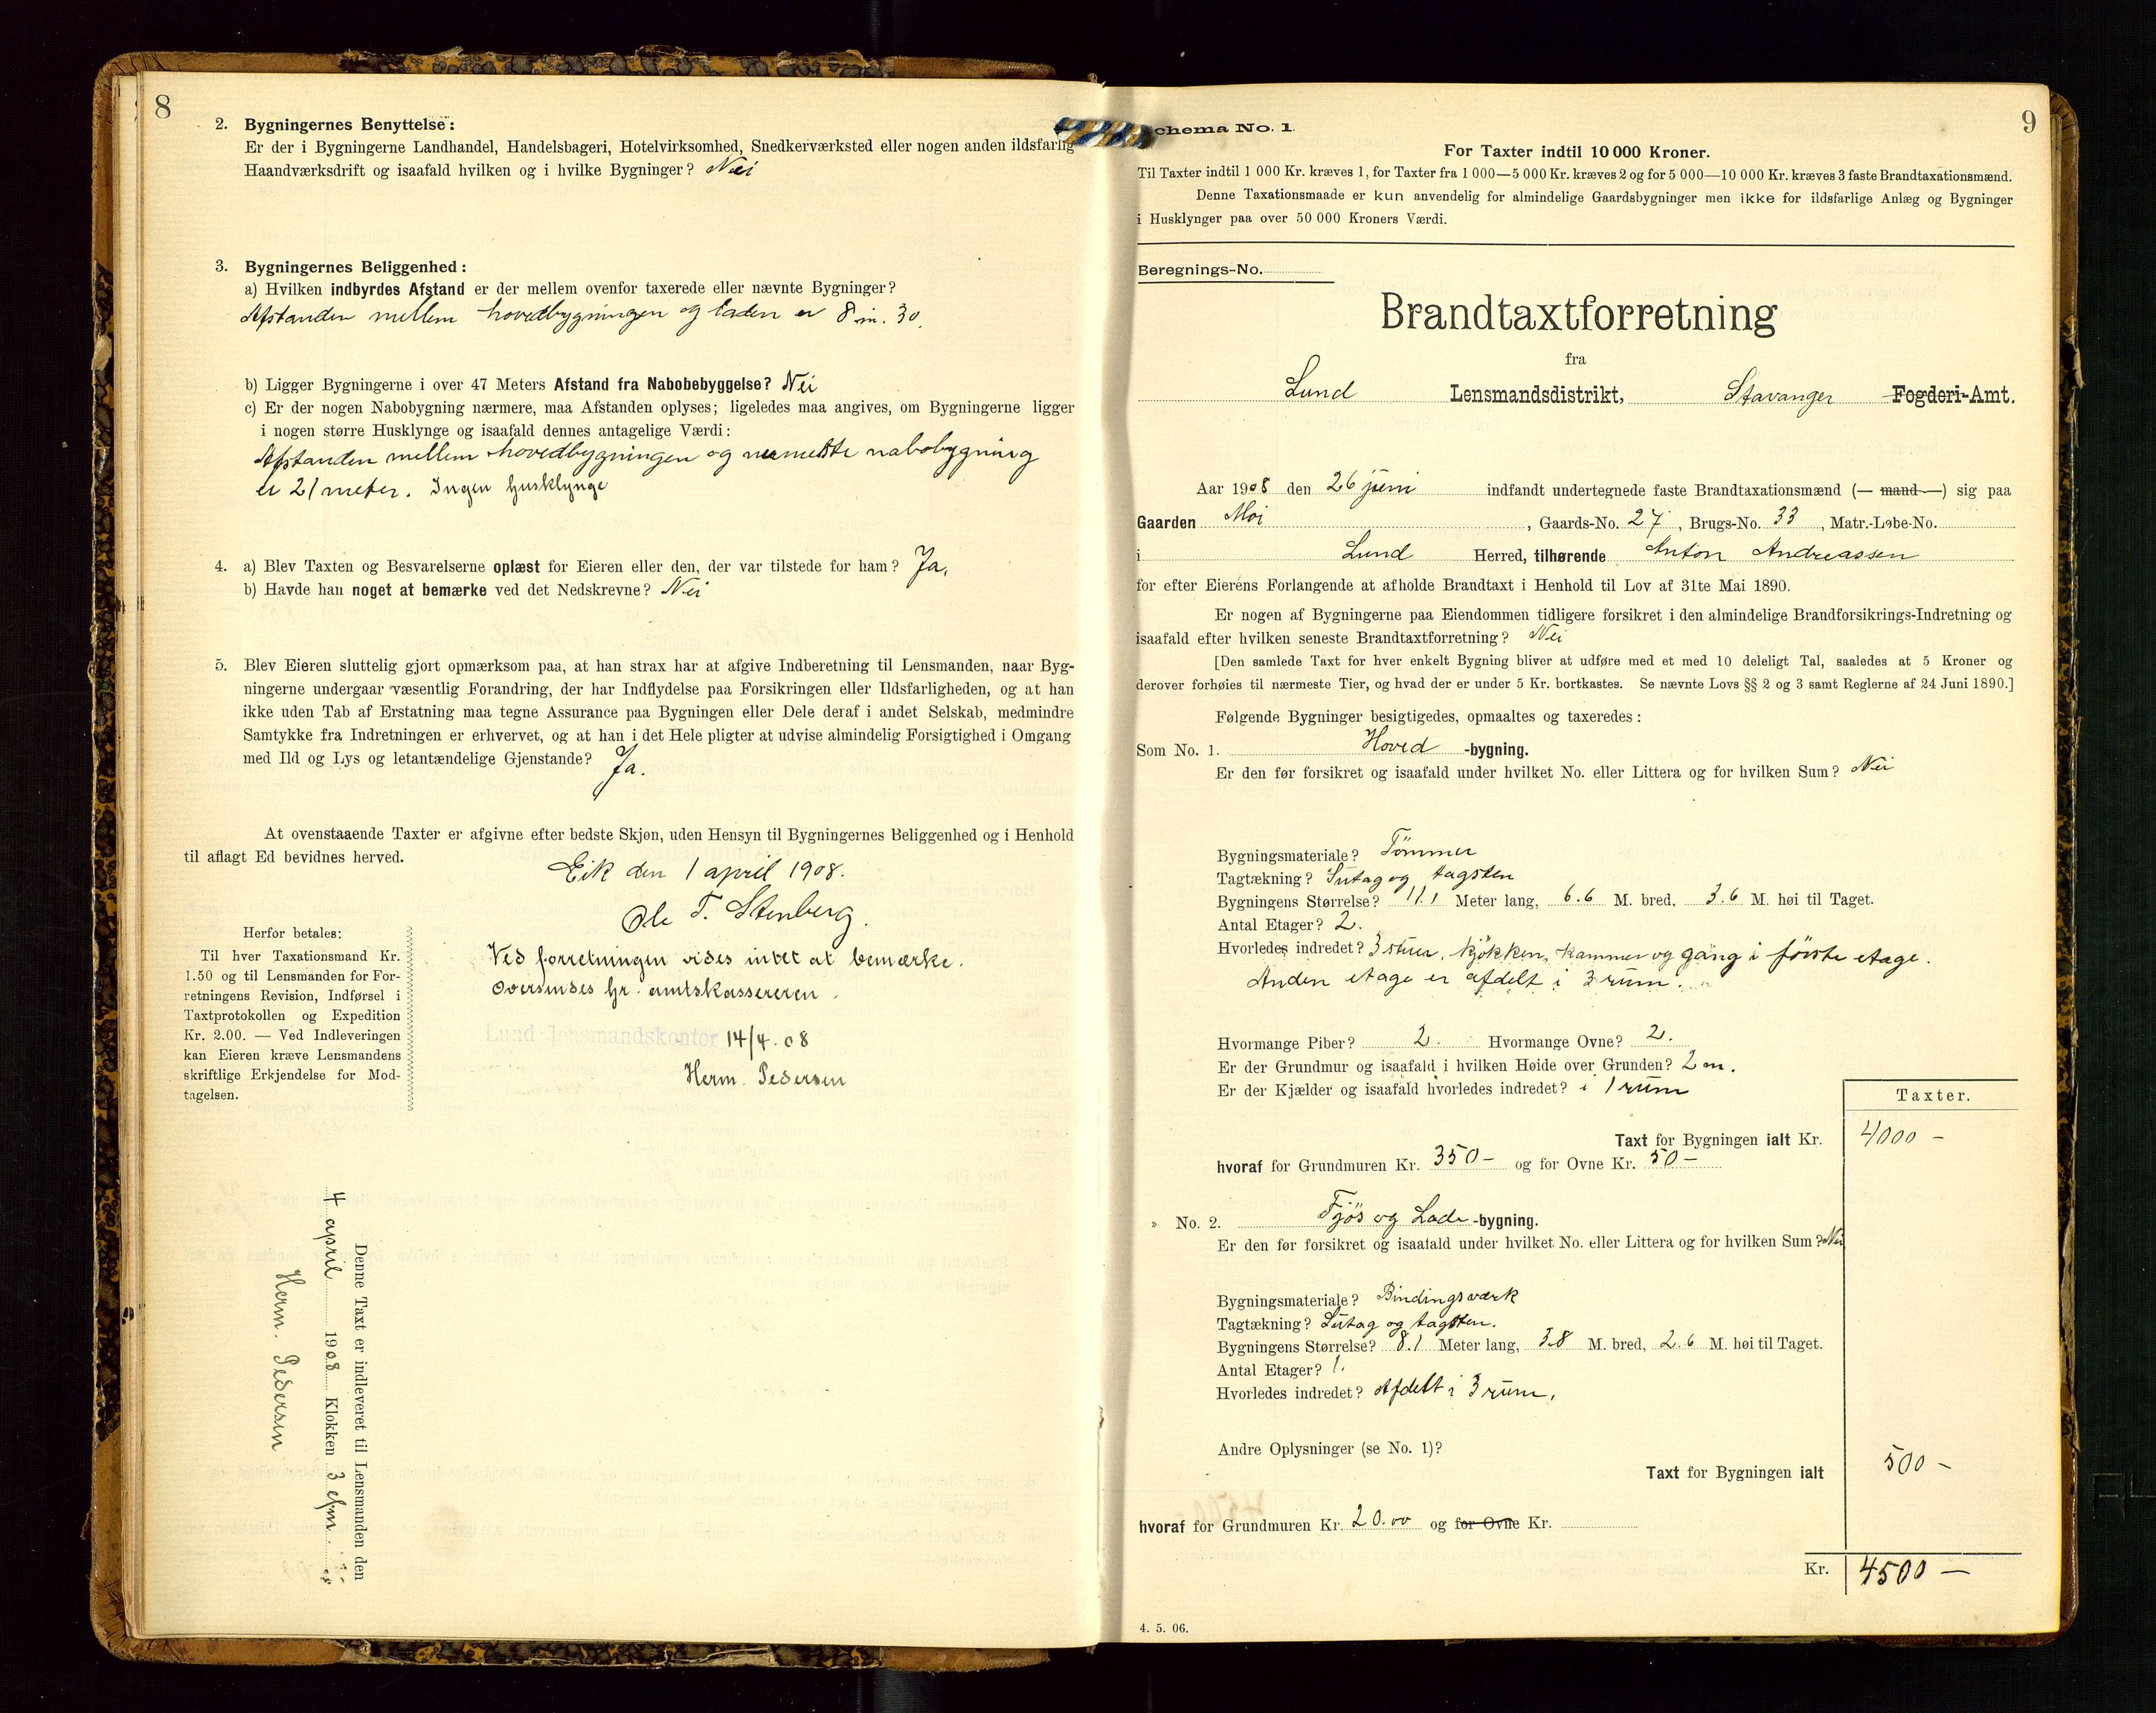 8
2. Bygningernes Benyttelse:
Er der i Bygningerne Landhandel, Handelsbageri, Hotelvirksomhed, Snedkerværksted eller nogen anden ildsfarlig
Haandværksdrift og isaafald hvilken og i hvilke Bygninger? Nei
3. Bygningernes Beliggenhed:
a) Hvilken indbyrdes Afstand er der mellem ovenfor taxerede eller nævnte Bygninger?
Afstanden mellem hovedbygningen og laden er 8 m. 30.
b) Ligger Bygningerne i over 47 Meters Afstand fra Nabobebyggelse? Nei
c) Er der nogen Nabobygning nærmere, maa Afstanden oplyses; ligeledes maa angives, om Bygningerne ligger
i nogen større Husklynge og isaafald dennes antagelige Værdi:
Afstanden mellem hovedbygningen og nærmeste nabobygning
er 21 meter. Ingen husklynge
4. a) Blev Taxten og Besvarelserne oplæst for Eieren eller den, der var tilstede for ham? Ja.
b) Havde han noget at bemærke ved det Nedskrevne? Nei
5. Blev Eieren sluttelig gjort opmærksom paa, at han strax har at afgive Indberetning til Lensmanden, naar Byg-
ningerne undergaar væsentlig Forandring, der har Indflydelse paa Forsikringen eller Ildsfarligheden, og at han
ikke uden Tab af Erstatning maa tegne Assurance paa Bygningen eller Dele deraf i andet Selskab, medmindre
Samtykke fra Indretningen er erhvervet, og at han i det Hele pligter at udvise almindelig Forsigtighed i Omgang
med Ild og Lys og letantændelige Gjenstande? Ja.
At ovenstaaende Taxter er afgivne efter bedste Skjøn, uden Hensyn til Bygningernes Beliggenhed og i Henhold
til aflagt Ed bevidnes herved.
Eik den 1 april 1908.
Ole T. Stenberg.
Ved forretningen vides intet at bemærke.
Oversendes hr. amtskassereren.
Lund lensmandskontor 14/4.08
Herm. Pedersen
Herfor betales:
Til hver Taxationsmand Kr.
1.50 og til Lensmanden for For-
retningens Revision, Indførsel i
Taxtprotokollen og Expedition
Kr. 2.00. — Ved Indleveringen
kan Eieren kræve Lensmandens
skriftlige Erkjendelse for Mod-
tagelsen.
Denne Taxt er indleveret til Lensmanden den
4 april 1908 Klokken 3 efm.
Herm. Pedersen
9
Schema No. 1.
For Taxter indtil 10 000 Kroner.
Til Taxter indtil 1 000 Kr. kræves 1, for Taxter fra 1 000—5 000 Kr. kræves 2 og for 5 000—10 000 Kr. kræves 3 faste Brandtaxationsmænd.
Denne Taxationsmaade er kun anvendelig for almindelige Gaardsbygninger men ikke for ildsfarlige Anlæg og Bygninger
i Husklynger paa over 50 000 Kroners Værdi.
Beregnings-No.
Brandtaxtforretning
fra
Lund Lensmandsdistrikt, Stavanger Fogderi-Amt.
Aar 1908 den 26 juni indfandt undertegnede faste Brandtaxationsmænd (— mand —) sig paa
Gaarden Moi, Gaards-No. 27, Brugs-No. 33, Matr.-Løbe-No.
i Lund Herred, tilhørende Anton Andreassen
for efter Eierens Forlangende at afholde Brandtaxt i Henhold til Lov af 31te Mai 1890.
Er nogen af Bygningerne paa Eiendommen tidligere forsikret i den almindelige Brandforsikrings-Indretning og
isaafald efter hvilken seneste Brandtaxtforretning? Nei
[Den samlede Taxt for hver enkelt Bygning bliver at udføre med et med 10 deleligt Tal, saaledes at 5 Kroner og
derover forhøies til nærmeste Tier, og hvad der er under 5 Kr. bortkastes. Se nævnte Lovs §§ 2 og 3 samt Reglerne af 24 Juni 1890.]
Følgende Bygninger besigtigedes, opmaaltes og taxeredes:
Som No. 1. Hoved -bygning.
Er den før forsikret og isaafald under hvilket No. eller Littera og for hvilken Sum? Nei
Bygningsmateriale? Tömmer
Tagtækning? Sutag og tagsten
Bygningens Størrelse? 11.1 Meter lang, 6.6 M. bred, 3.6 M. høi til Taget.
Antal Etager? 2.
Hvorledes indredet? 3 stuer, kjøkken, kammer og gang i første etage.
Anden etage er afdelt i 3 rum.
Hvormange Piber? 2. Hvormange Ovne? 2.
Er der Grundmur og isaafald i hvilken Høide over Grunden? 2 m.
Er der Kjælder og isaafald hvorledes indredet? i 1 rum
Taxter.
Taxt for Bygningen ialt Kr. 4000 -
hvoraf for Grundmuren Kr. 350- og for Ovne Kr. 50-
» No. 2. Fjøs og Lade -bygning.
Er den før forsikret og isaafald under hvilket No. eller Littera og for hvilken Sum? Nei
Bygningsmateriale? Bindingsværk
Tagtækning? Sutag og tagsten.
Bygningens Størrelse? 8.1 Meter lang, 3.8 M. bred, 2.6 M. høi til Taget.
Antal Etager? 1.
Hvorledes indredet? Afdelt i 3 rum.
Andre Oplysninger (se No. 1)?
Taxt for Bygningen ialt 500 -
hvoraf for Grundmuren Kr. 20.00 og for Ovne Kr.
Kr. 4500 —
4. 5. 06.